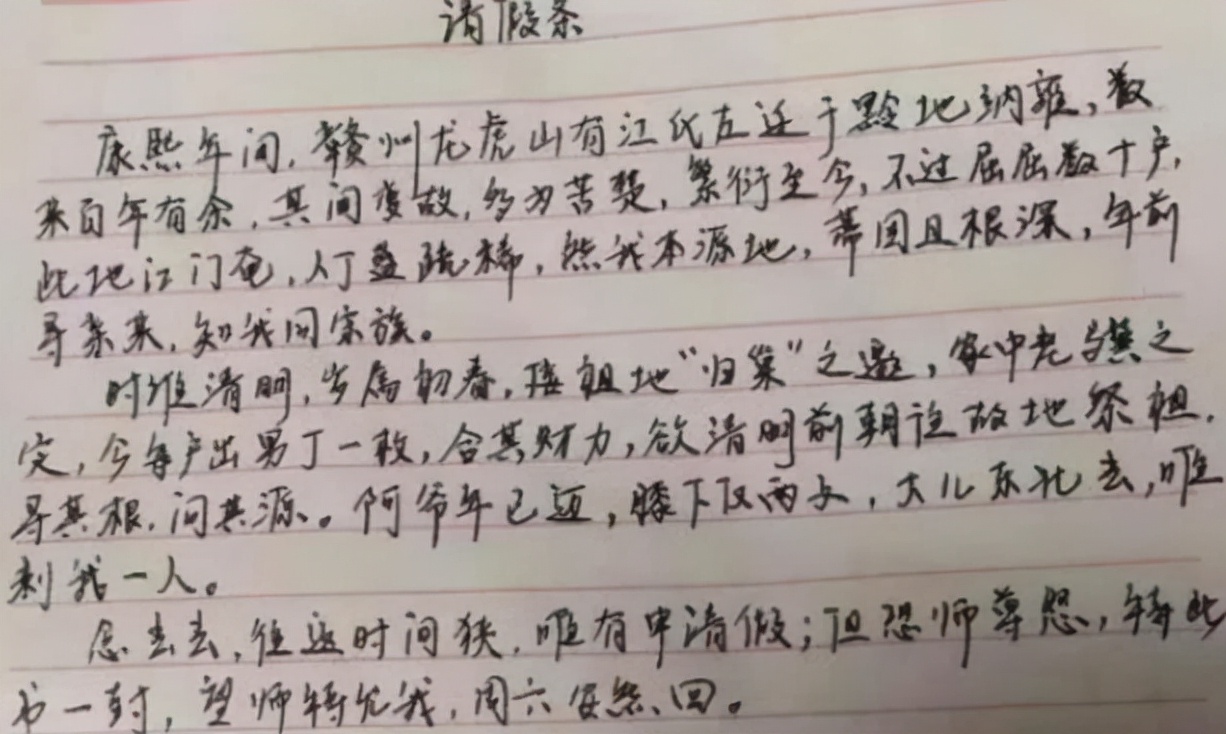 请假条
康熙年间，赣州龙虎山有江氏左迁于黔地纳雍，数
来百年有余，其间变故，多为苦楚，繁衍至今，不过屈屈数十户，
此地江门奄，人丁益疏稀，然我本源地，蒂固且根深，年前
寻亲来，知我同宗族。
时维清明，岁属初春，接祖地“归巢”之邀，家中老与冀之
定，今每户出男丁一枚，合其财力，欲清明前朝往故地祭祖，
寻其根，问其源。阿爷年已迈，膝下仅两，大儿东北去，唯
剩我一人。
念去去，往返时间狭，唯有申请假；但恐师尊怒，特此
书一封，望师特允我，周六安然回。